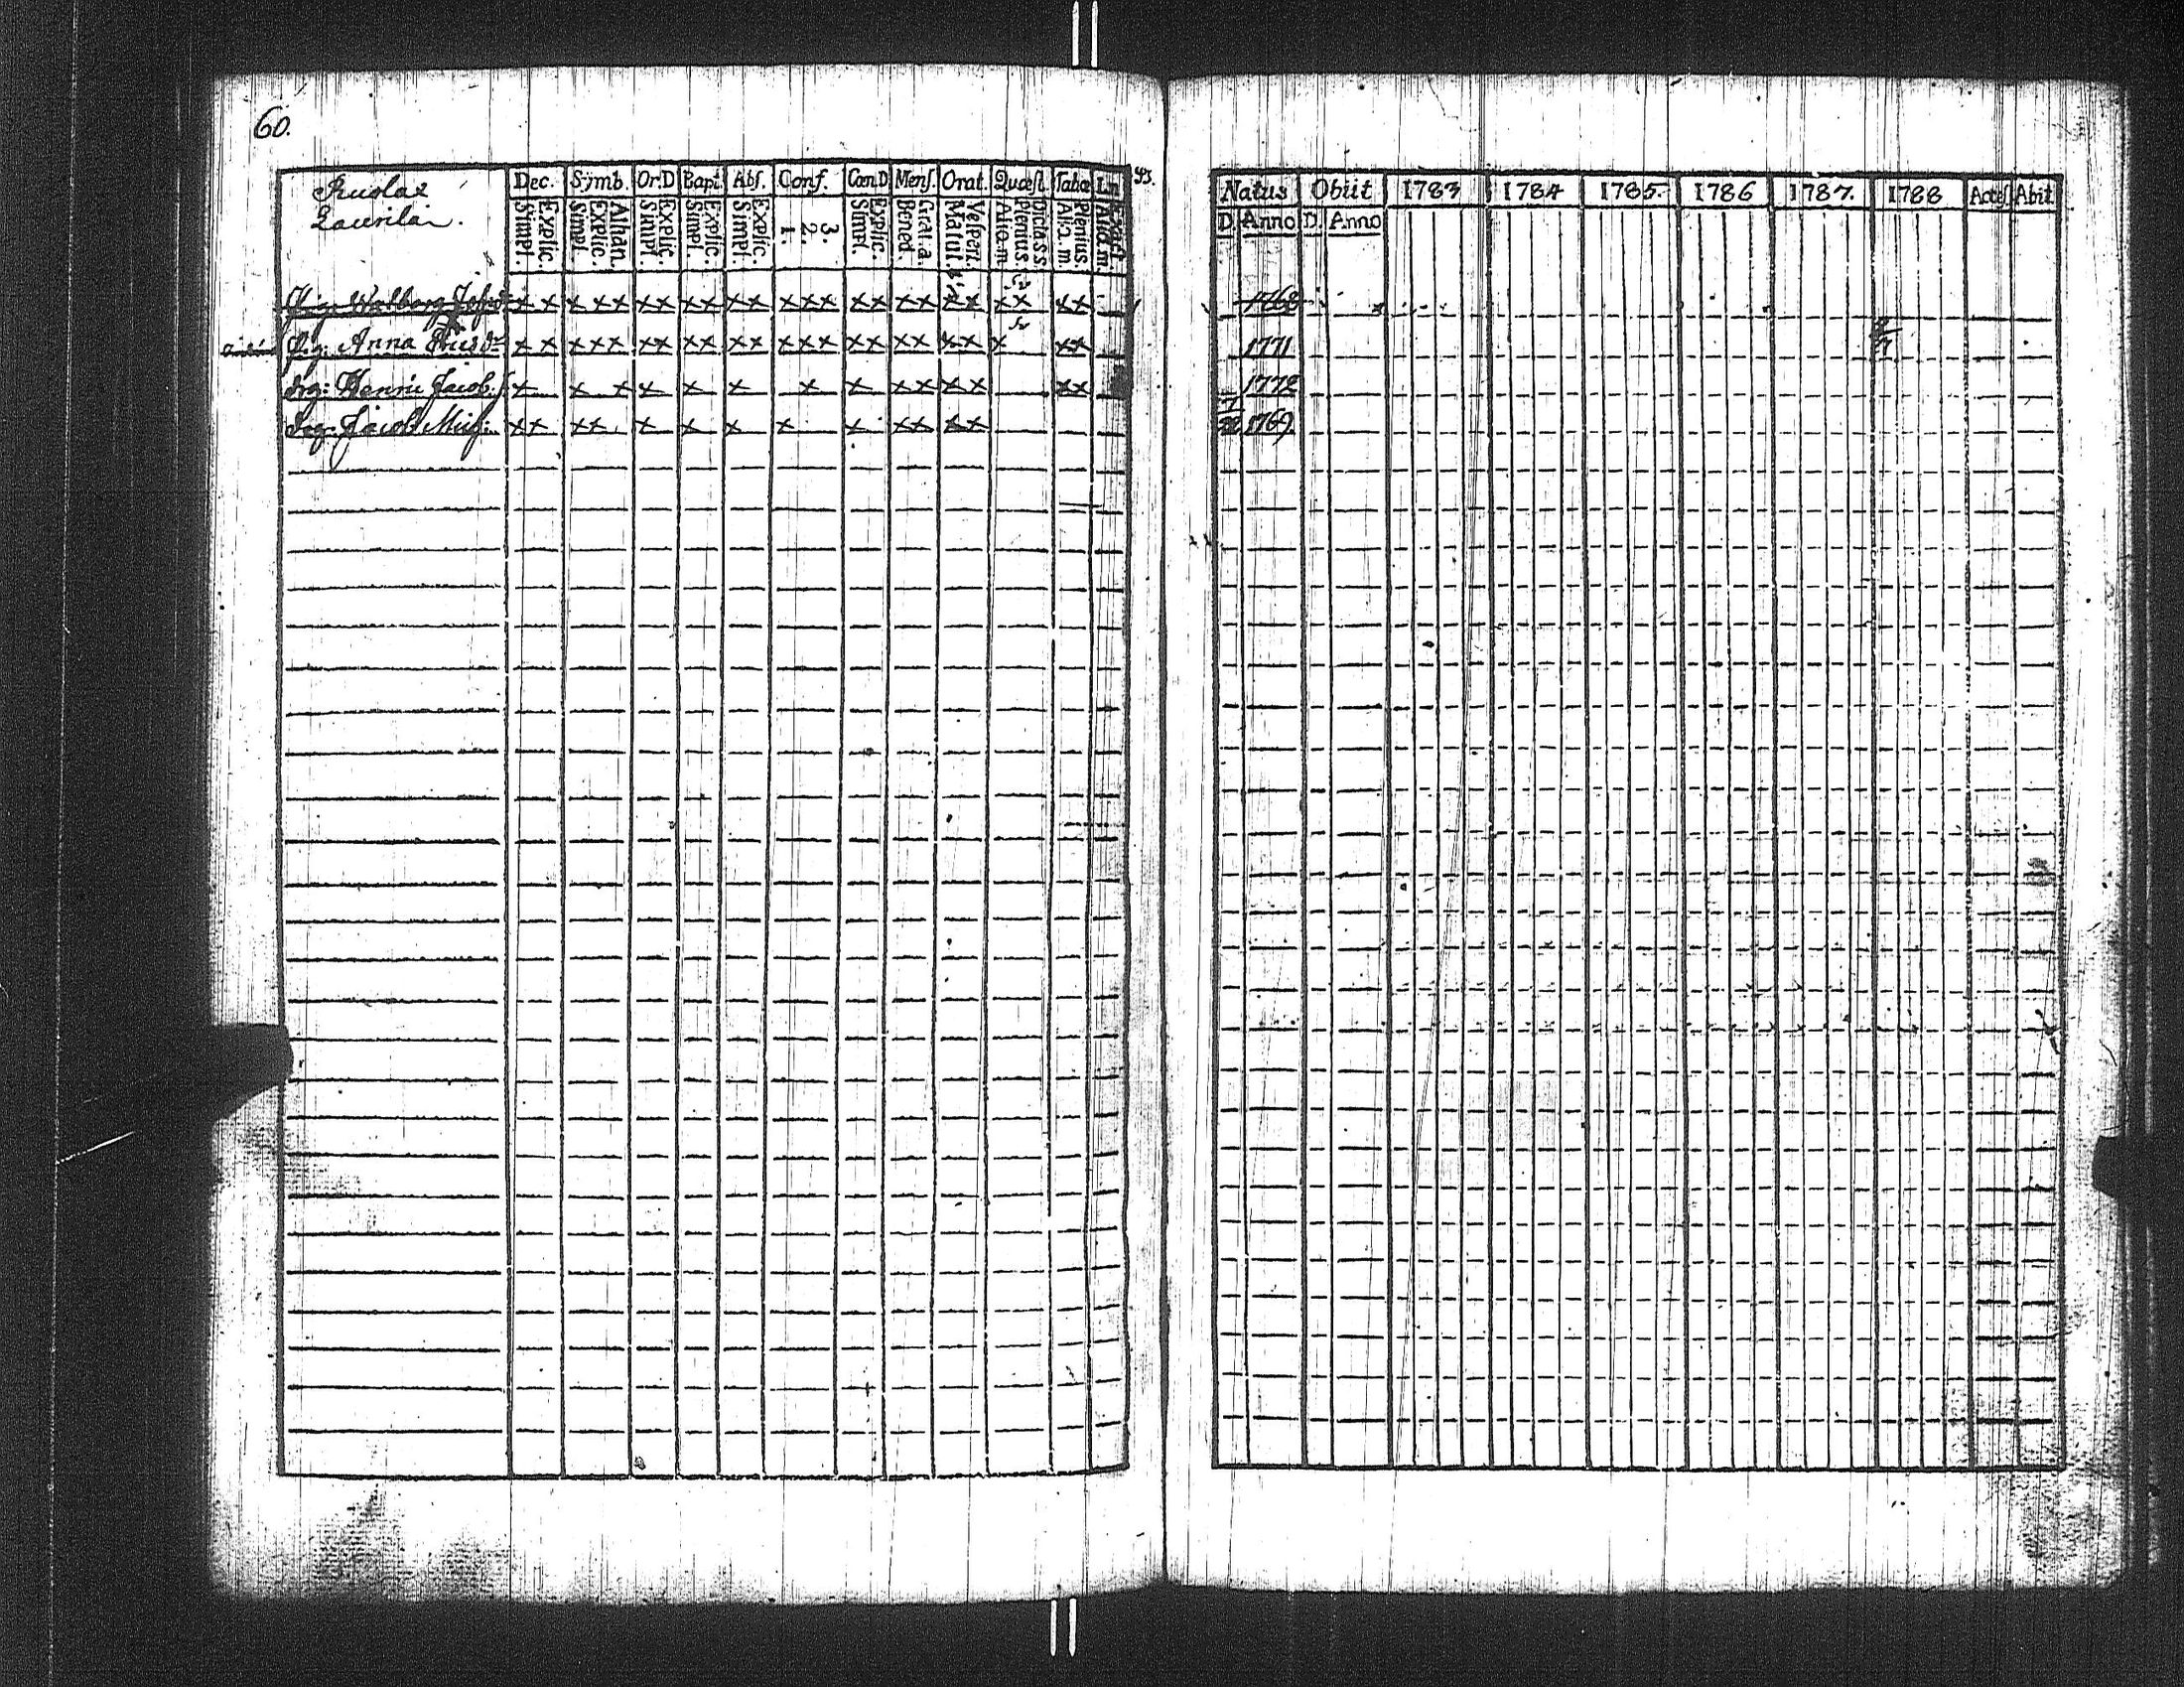 60.
Ruolax
Laurila.
Dec. Symb. Or.D Bapt. Abs. Conf. Cœn.D Mens. Orat. Quæst. Tabæ Lin
Simpl. Explic. Simpl. Explic. Athan. Simpl. Explic. Simpl. Explic. Simpl. Explic. 1. 2. 3. Simpl. Explic. Bened. Grat.a. Matut. Vespert. Alio.m. Plenius. Dicta S.S. Alio.m. Plenius. Alio.m.
Walborg x x x x x x x x x x x x x x x x x x x x x x x x
Anna x x x x x x x x x x x x x x x x x x x x x x x
Henric Jacob. x x x x x x x x x x x x x x
Jacob x x x x x x x x x x x x x
Natus Obiit 1783 1784 1785. 1786 1787. 1788 Acces. Abit
D. Anno D. Anno
1768
1771
1772
1769